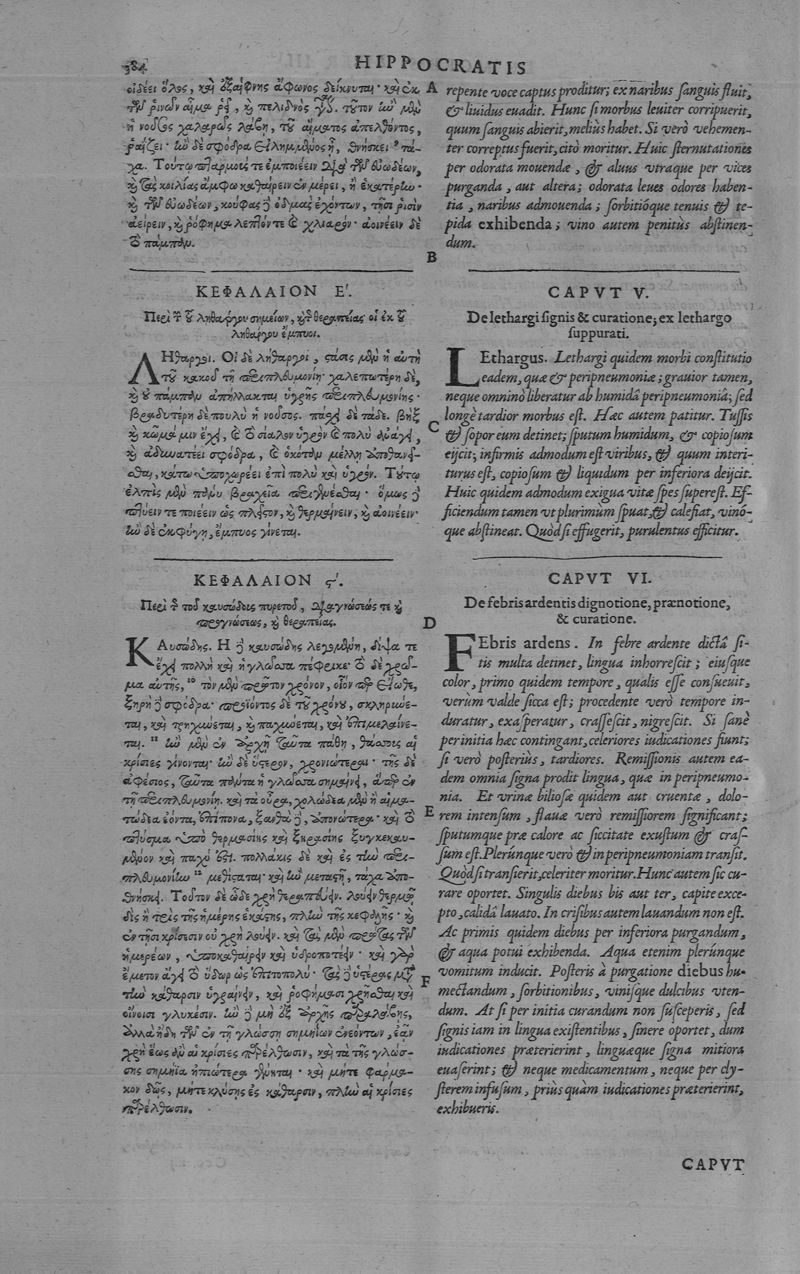 384
HIPPOCRATIS
οἰδέει ὅλος, καὶ ἐξαίφνης ἄφωνος δείκνυται· καὶ ἐκ
τῶν ῥινῶν αἷμα ῥεῖ, καὶ πελιδνὸς
ἡ νοῦσος χαλαρῶς λάβῃ, τοῦ αἵματος ἀπελθόντος,
ῥαΐζει· ἢν δὲ σφόδρα
καὶ τὰς κοιλίας ἄμφω καθαίρειν ἐν μέρει, ἢ ἑκατέρην·
καὶ τῶν εὐωδέων, κούφας δὲ ὀδμὰς ἐχόντων, τῇσι ῥισὶν
ἀείρειν, καὶ ῥόφημα λεπτόν τε καὶ χλιαρόν· ἀοινέειν δὲ
τὸ πάμπαν.
ΚΕΦΑΛΑΙΟΝ Ε΄.
Περὶ τῶν τοῦ ληθάργου σημείων, καὶ τῆς θεραπείας· οἱ ἐκ τοῦ
ληθάργου ἔμπυοι.
ΛΗθαργοι. Οἱ δὲ λήθαργοι, στάσις μὲν ἡ αὐτὴ
τοῦ κακοῦ τῇ περιπλευμονίῃ· χαλεπωτέρη δὲ,
καὶ οὐ πάμπαν ἀπήλλακται ὑγρῆς περιπλευμονίης·
βραδυτέρη δὲ πουλὺ ἡ νοῦσος. πάσχει δὲ τάδε. βὴξ
καὶ κῶμά μιν ἔχει, καὶ τὸ σίαλον ὑγρὸν καὶ πολὺ ἀνάγει,
καὶ ἀδυνατέει σφόδρα, καὶ ὁκόταν μέλλῃ ἀποθανεῖ-
σθαι, κάτω ὑποχωρέει ἐπὶ πολὺ καὶ ὑγρόν. Τούτῳ
ἐλπὶς μὲν πάνυ βραχεῖα περιγενέσθαι· ὅμως δὲ
πτύειν τε ποιέειν ὡς πλεῖστον, καὶ θερμαίνειν, καὶ ἀοινέειν·
ἢν δὲ ἐκφύγῃ, ἔμπυος γίνεται.
ΚΕΦΑΛΑΙΟΝ ϛ΄.
Περὶ τῆς τοῦ καυσώδους πυρετοῦ, διαγνώσεώς τε καὶ
προγνώσεως, καὶ θεραπείας.
ΚΑυσώδης. Ἡ δὲ καυσώδης λεγομένη, δίψα τε
ἔχει πολλὴ καὶ ἡ γλῶσσα πέφρικε· τὸ δὲ χρῶ-
μα αὐτῆς, 10 τὸν μὲν πρῶτον χρόνον, οἷόν περ εἴωθε,
ξηρὴ δὲ σφόδρα· προϊόντος δὲ τοῦ χρόνου, σκληρύνε-
ται, καὶ τρηχύνεται, καὶ παχύνεται, καὶ ἐπιμελαίνε-
ται. 11 ἢν μὲν ἐν ἀρχῇ ταῦτα πάθῃ, θάσσους αἱ
κρίσιες γίνονται· ἢν δὲ ὕστερον, χρονιώτεραι· τῆς δὲ
ἀφέσιος, ταῦτα πάντα ἡ γλῶσσα σημαίνει, ἅπερ ἐν
τῇ περιπλευμονίῃ. καὶ τὰ οὖρα, χολώδεα μὲν ἢ αἱμα-
τώδεα ἐόντα, ἐπίπονα, ξανθὰ δὲ, ἀπονώτερα· καὶ τὸ
πτύσμα ὑπὸ θερμασίης καὶ ξηρασίης ξυγκεκαυ-
μένον καὶ παχὺ ἐστί. πολλάκις δὲ καὶ ἐς τὴν περι-
πλευμονίην 12 μεθίσταται· καὶ ἢν μεταστῇ, τάχα ἀπο-
θνήσκει. Τοῦτον δὲ ὧδε χρὴ θεραπεύειν. λούειν θερμῷ
δὶς ἢ τρὶς τῆς ἡμέρης ἑκάστης, πλὴν τῆς κεφαλῆς· καὶ
ἐν τῇσι κρίσεσιν οὐ χρὴ λούειν. καὶ τὰς μὲν πρώτας τῶν
ἡμερέων, ὑποκαθαίρειν καὶ ὑδροποτέειν· καὶ γὰρ
ἔμετον ἄγει τὸ ὕδωρ ὡς ἐπιτοπολύ· τὰς δὲ ὑστέρας μετὰ
τὴν κάθαρσιν ὑγραίνειν, καὶ ῥοφήμασι χρῆσθαι καὶ
οἴνοισι γλυκέσιν. ἢν δὲ μὴ ἐξ ἀρχῆς παραλάβῃς,
ἀλλὰ ἤδη τῶν ἐν τῇ γλώσσῃ σημηΐων ἐνεόντων, ἐᾷν
χρὴ ἕως ἂν αἱ κρίσιες παρέλθωσιν, καὶ τὰ τῆς γλώσ-
σης σημήϊα ἠπιώτερα γένηται· καὶ μήτε φάρμα-
κον δῷς, μήτε κλύσῃς ἐς κάθαρσιν, πλὴν αἱ κρίσιες
παρέλθωσιν.
A
B
C
D
E
F
repente voce captus proditur; ex naribus sanguis fluit,
& liuidus euadit. Hunc si morbus leuiter corripuerit,
quum sanguis abierit, meliùs habet. Si verò vehemen-
ter correptus fuerit, citò moritur. Huic sternutationes
per odorata mouendæ, & aluus vtraque per vices
purganda, aut altera; odorata leues odores haben-
tia, naribus admouenda; sorbitióque tenuis & te-
pida exhibenda; vino autem penitùs abstinen-
dum.
CAPVT V.
De lethargi signis & curatione; ex lethargo
suppurati.
LEthargus. Lethargi quidem morbi constitutio
eadem, quæ & peripneumoniæ; grauior tamen,
neque omninò liberatur ab humidâ peripneumoniâ; sed
longè tardior morbus est. Hæc autem patitur. Tussis
& sopor eum detinet; sputum humidum, & copiosum
eijcit; infirmis admodum est viribus, & quum interi-
turus est, copiosum & liquidum per inferiora deijcit.
Huic quidem admodum exigua vitæ spes superest. Ef-
ficiendum tamen vt plurimum spuat, & calefiat, vinó-
que abstineat. Quòd si effugerit, purulentus efficitur.
CAPVT VI.
De febris ardentis dignotione, prænotione,
& curatione.
FEbris ardens. In febre ardente dictâ si-
tis multa detinet, lingua inhorrescit; eiusque
color, primo quidem tempore, qualis esse consueuit,
verum valde sicca est; procedente verò tempore in-
duratur, exasperatur, crassescit, nigrescit. Si sanè
per initia hæc contingant, celeriores iudicationes fiunt;
si verò posteriùs, tardiores. Remissionis autem ea-
dem omnia signa prodit lingua, quæ in peripneumo-
nia. Et vrinæ biliosæ quidem aut cruentæ, dolo-
rem intensum, flauæ verò remissiorem significant;
sputumque præ calore ac siccitate exustum & cras-
sum est. Plerúnque verò & in peripneumoniam transit.
Quòd si transierit, celeriter moritur. Hunc autem sic cu-
rare oportet. Singulis diebus bis aut ter, capite exce-
pto, calidâ lauato. In crisibus autem lauandum non est.
Ac primis quidem diebus per inferiora purgandum,
& aqua potui exhibenda. Aqua etenim plerúnque
vomitum inducit. Posteris à purgatione diebus hu-
mectandum, sorbitionibus, vinisque dulcibus vten-
dum. At si per initia curandum non susceperis, sed
signis iam in lingua existentibus, sinere oportet, dum
iudicationes præterierint, linguæque signa mitiora
euaserint; & neque medicamentum, neque per cly-
sterem infusum, priùs quàm iudicationes præterierint,
exhibueris.
CAPVT